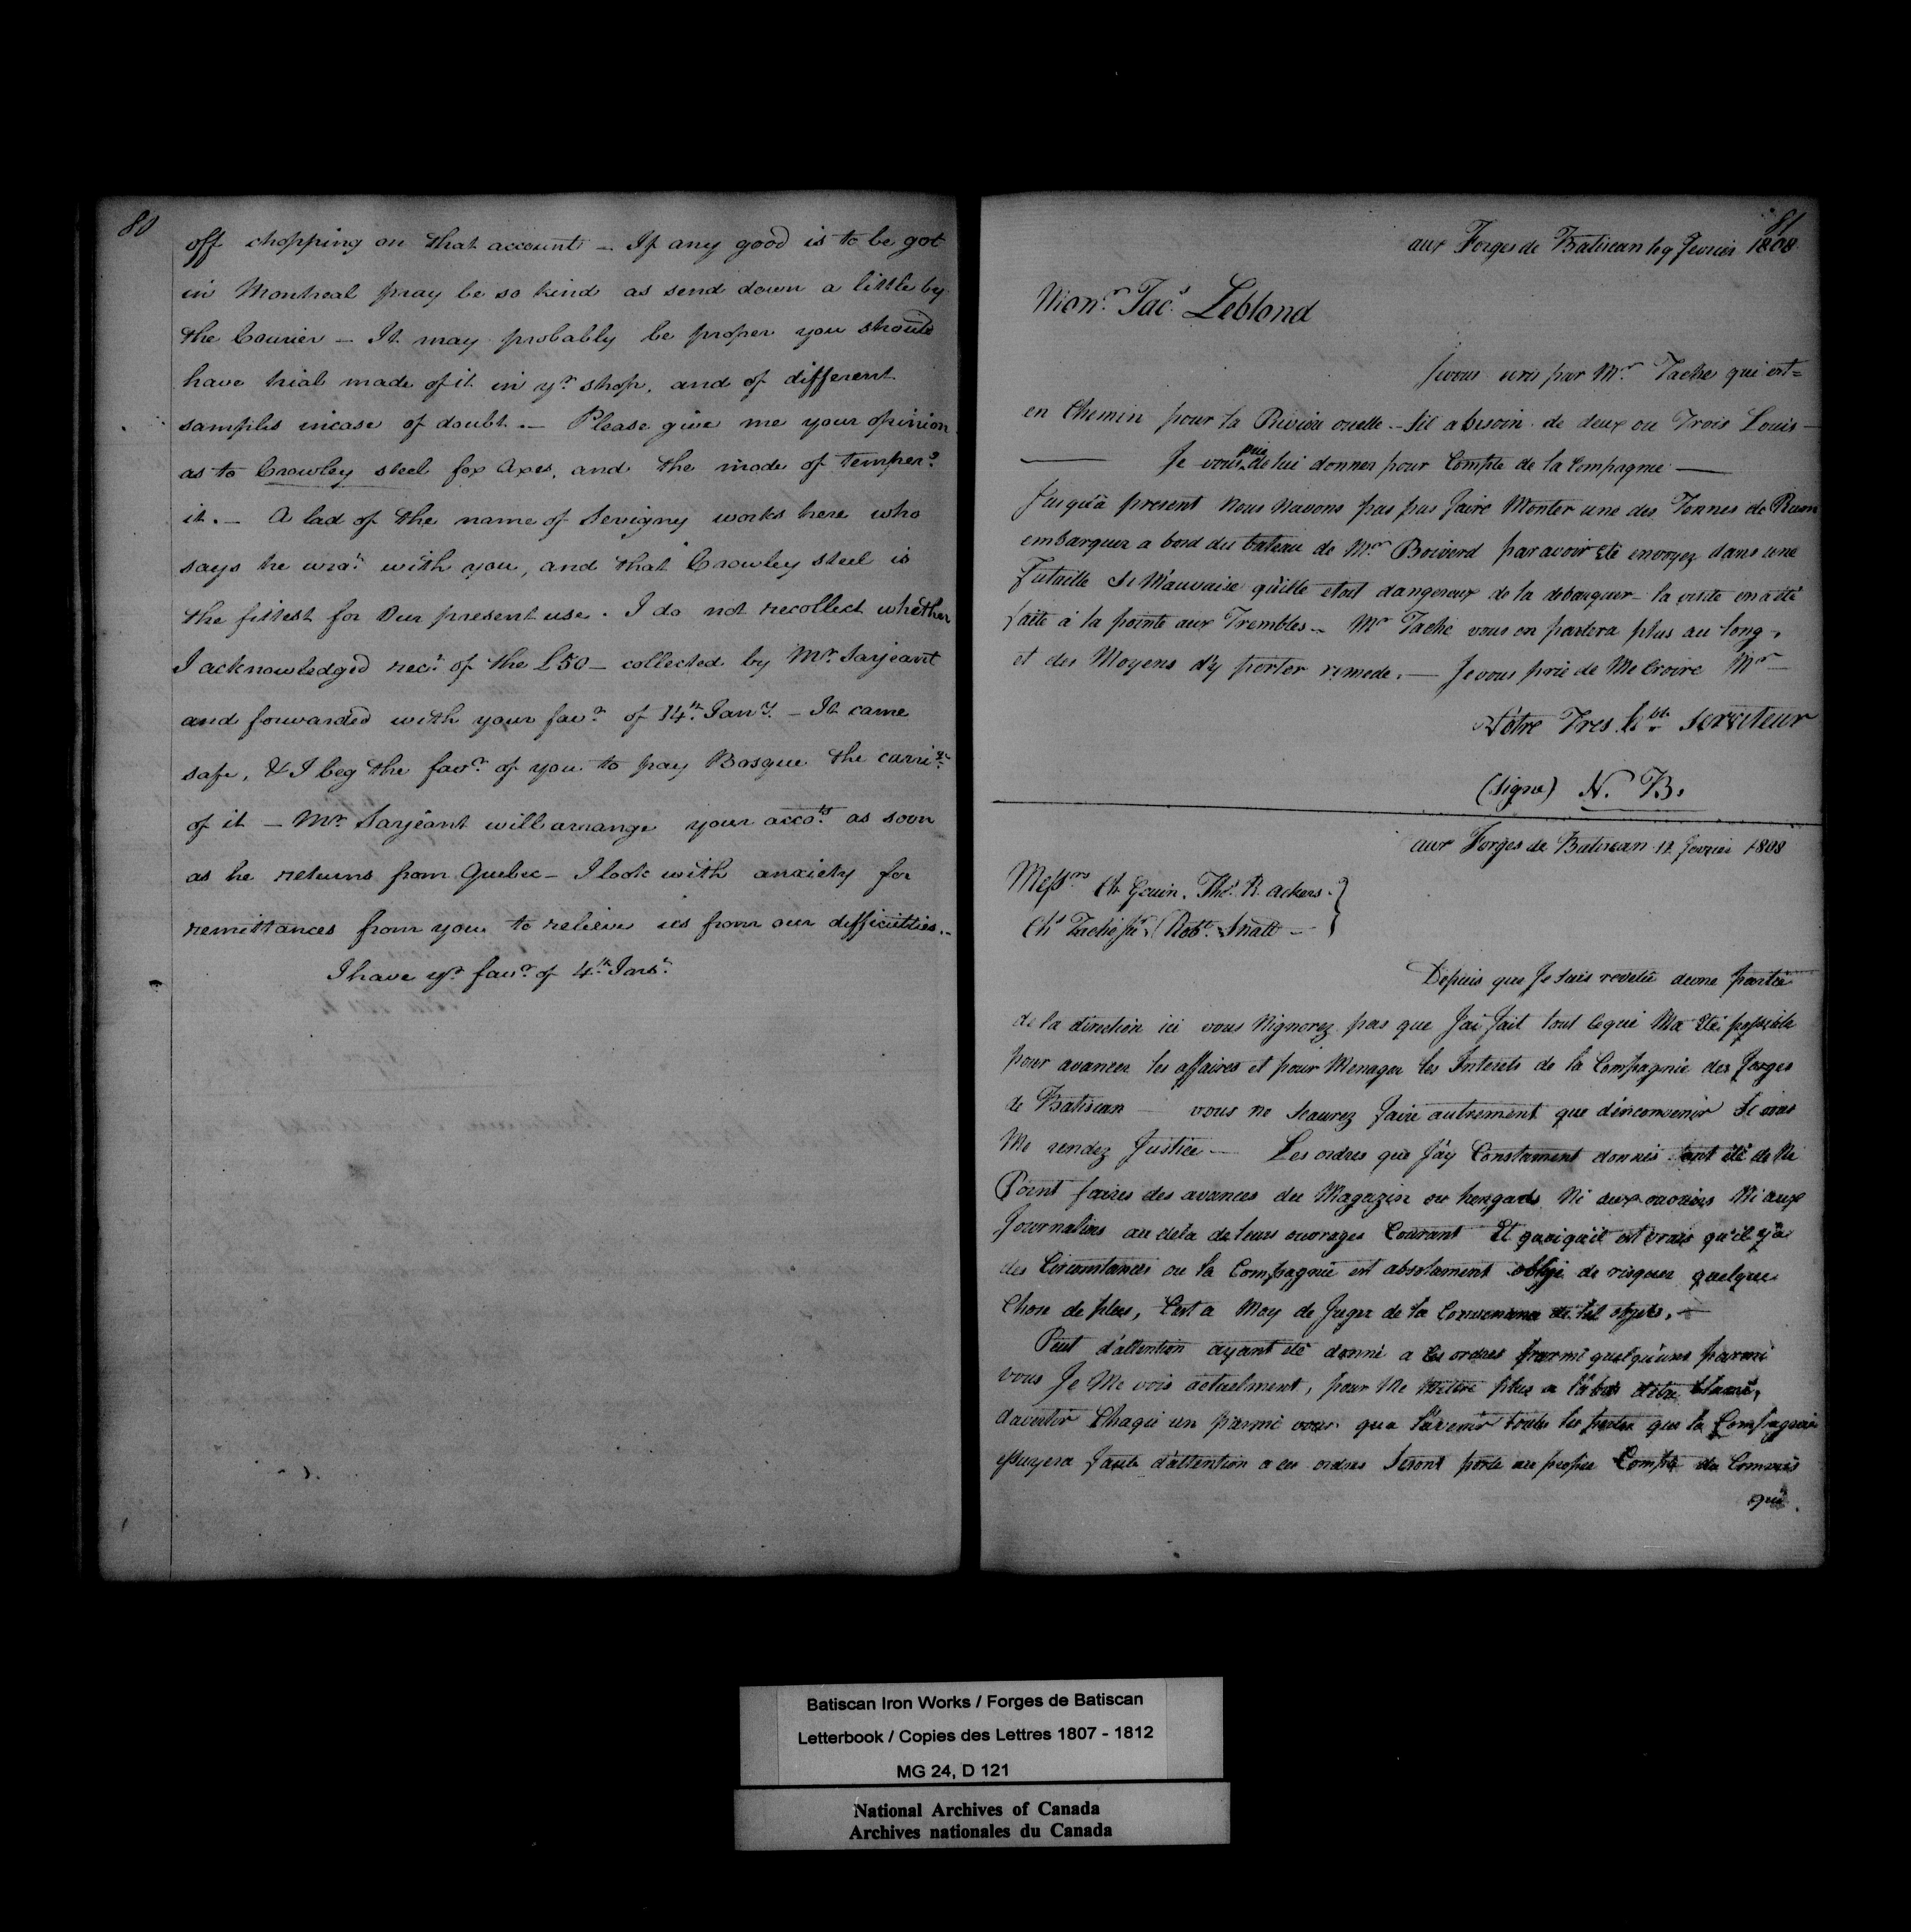 80
off chopping on that account — If any good is to be got
in Montreal pray be so kind as send down a little by
the Courier — It may probably be proper you should
have trial made of it in yr shop, and of different
samples incase of doubt. — Please give me your opinion
as to Crowley steel for Axes, and the mode of temperg
it. — A lad of the name of Sevigny works here who
says he wrot with you, and that Crowley steel is
the fittest for our present use. I do not recollect whether
I acknowledged rect of the £50 — collected by Mr Sarjeant
and forwarded with your favr of 14th Jany. — It came
safe, & I beg the favr of you to pay Bosque the
of it — Mr Sarjeant will arrange your accots as soon
as he returns from Quebec — I look with anxiety for
remittances from you to relieve us from our difficulties. —
I have yr favr of 4th Inst.
81
aux Forges de Batiscan le 9 fevrier 1808
Monr Jacs Leblond
Je vous ecris par Mr Tache qui est =
en Chemin pour la Riviere ouelle — Sil a besoin de deux ou Trois Louis —
Je vous prie de lui donner pour Compte de la Compagnie —
Jusqu'à present Nous Navons pas pus faire Monter une des Tonnes de Rum
embarquez a bord du bateau de Mr Boiverd par avoir été envoyez dans une
Futaille Si Mauvaise qu'elle etoit dangereux de la debarquer — la visite en a été
faite à la pointe aux Trembles — Mr Taché vous en parlera plus au long,
et des Moyens d'y porter remede. — Je vous prie de Me Croire Mr
Votre Tres hble Serviteur
(Signe) N. B.
aux Forges de Batiscan 12 fevrier 1808
Messrs Ch Gouin, Ths R. Ackers }
Chs Taché Jr, Robt Snatt —
Depuis que Je Suis revetu dune partie
de la direction ici vous Nignorez pas que J'ai fait tout ce qui Ma été possible
pour avancer les affaires et pour Menager les Interets de la Compagnie des forges
de Batiscan — vous ne Scaurez faire autrement que d'en convenir Si vous
Me rendez Justice — Les ordres que J'ay Constament donnés ont été de Ne
Point faires des avances du Magazin ou hengards Ni aux ouvriers Ni aux
Journaliers au dela de leurs ouvrages Courant Et quoiqu'il est vrais qu'il y'a
des Circonstances ou la Compagnie est absolument obligé de risquer quelque
Chose de plus, C'est a Moy de Juger de la Convenance de tel objets. —
Peut d'attention ayant été donné a ces ordres parmi quelqu'uns parmi
vous Je Me vois actuelment, pour Me Mettre plus a l'abri d'etre blamé,
davertir Chaque un parmi vous que a l'avenir toutes les pertes que la Compagnie
essuyera faute d'attention a ces ordres Seront porté au propre Compte du Commis
qui
Batiscan Iron Works / Forges de Batiscan
Letterbook / Copies des Lettres 1807 - 1812
MG 24, D 121
National Archives of Canada
Archives nationales du Canada